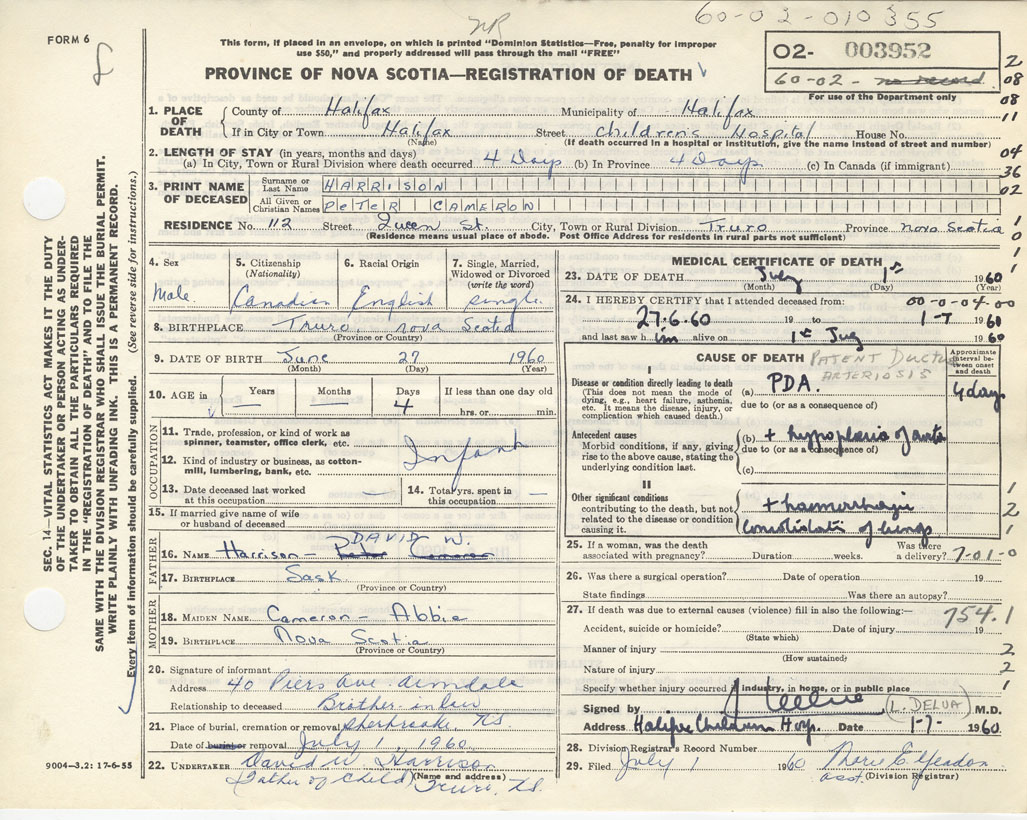 NR
60-02-010355
FORM 6
8
This form, if placed in an envelope, on which is printed "Dominion Statistics—Free, penalty for improper
use $50," and properly addressed will pass through the mail "FREE"
02- 003952
PROVINCE OF NOVA SCOTIA—REGISTRATION OF DEATH
60-02- no record
For use of the Department only
2
08
08
11
1. PLACE OF DEATH County of Halifax Municipality of Halifax
If in City or Town Halifax Street Children's Hospital House No.
(Name) (If death occurred in a hospital or institution, give the name instead of street and number)
2. LENGTH OF STAY (in years, months and days)
(a) In City, Town or Rural Division where death occurred 4 Days (b) In Province 4 Days (c) In Canada (if immigrant)
04
36
02
3. PRINT NAME OF DECEASED Surname or Last Name HARRISON
All Given or Christian Names PETER CAMERON
RESIDENCE No. 112 Street Queen St. City, Town or Rural Division Truro Province Nova Scotia
(Residence means usual place of abode. Post Office Address for residents in rural parts not sufficient)
4. Sex Male
5. Citizenship (Nationality) Canadian
6. Racial Origin English
7. Single, Married, Widowed or Divorced (write the word) single
8. BIRTHPLACE Truro, Nova Scotia
(Province or Country)
9. DATE OF BIRTH June 27 1960
(Month) (Day) (Year)
10. AGE in Years — Months — Days 4 If less than one day old hrs. or min.
OCCUPATION
11. Trade, profession, or kind of work as spinner, teamster, office clerk, etc.
Infant
12. Kind of industry or business, as cotton-mill, lumbering, bank, etc.
13. Date deceased last worked at this occupation —
14. Total yrs. spent in this occupation —
15. If married give name of wife or husband of deceased
FATHER
16. NAME Harrison - DAVID W.
Peter Cameron
17. BIRTHPLACE Sask.
(Province or Country)
MOTHER
18. MAIDEN NAME Cameron - Abbie
19. BIRTHPLACE Nova Scotia
(Province or Country)
20. Signature of informant
Address 40 Piers Ave. Armdale
Relationship to deceased Brother-in-law
21. Place of burial, cremation or removal Sherbrooke, NS
Date of burial or removal July 1 1960
22. UNDERTAKER David W. Harrison
(Father of Child) (Name and address) Truro, N.S.
9004—3.2: 17-6-55
MEDICAL CERTIFICATE OF DEATH
23. DATE OF DEATH July 1st 1960
(Month) (Day) (Year)
24. I HEREBY CERTIFY that I attended deceased from: 00-0-04-00
27.6.60 19 to 1-7 1960
and last saw him alive on 1st July 1960
CAUSE OF DEATH PATENT DUCTUS ARTERIOSIS
Approximate interval between onset and death
I
Disease or condition directly leading to death
(This does not mean the mode of dying, e.g., heart failure, asthenia, etc. It means the disease, injury, or complication which caused death.)
(a) PDA. 4 days
due to (or as a consequence of)
Antecedent causes
Morbid conditions, if any, giving rise to the above cause, stating the underlying condition last.
(b) + hypoplasia of aorta
due to (or as a consequence of)
(c)
II
Other significant conditions contributing to the death, but not related to the disease or condition causing it.
+ haemorrhagic
consolidation of lungs
1
2
1
25. If a woman, was the death associated with pregnancy? Duration weeks. Was there a delivery? 7-01-0
26. Was there a surgical operation? Date of operation 19
State findings Was there an autopsy?
27. If death was due to external causes (violence) fill in also the following:— 754.1
Accident, suicide or homicide? Date of injury 19
(State which)
Manner of injury 2
(How sustained)
Nature of injury 2
Specify whether injury occurred in industry, in home, or in public place 1
Signed by (L. DELUA) M.D.
Address Halifax Children Hosp. Date 1-7- 1960
28. Division Registrar's Record Number
29. Filed July 1 1960
asst. (Division Registrar)
SEC. 14—VITAL STATISTICS ACT MAKES IT THE DUTY
OF THE UNDERTAKER OR PERSON ACTING AS UNDER-
TAKER TO OBTAIN ALL THE PARTICULARS REQUIRED
IN THE "REGISTRATION OF DEATH" AND TO FILE THE
SAME WITH THE DIVISION REGISTRAR WHO SHALL ISSUE THE BURIAL PERMIT.
WRITE PLAINLY WITH UNFADING INK. THIS IS A PERMANENT RECORD.
Every item of information should be carefully supplied. (See reverse side for instructions.)